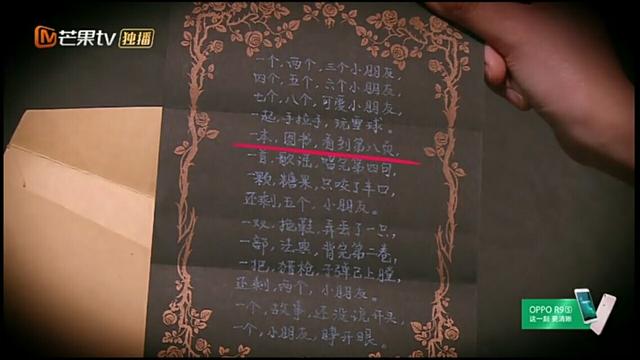 芒果tv 独播
一个，两个，三个小朋友，
四个，五个，六个小朋友，
七个，八个，可爱小朋友，
一起，手拉手，玩雪球。
一本，图书，看到第八页，
一首，歌谣，唱完第四句，
一颗，糖果，只咬了半口，
还剩，五个，小朋友。
一双，拖鞋，弄丢了一只，
一部，法典，背完第二卷，
一把，猎枪，子弹已上膛，
还剩，两个，小朋友。
一个，故事，还没说开头，
一个，小朋友，睁开眼。
OPPO R9s
这一刻 更清晰